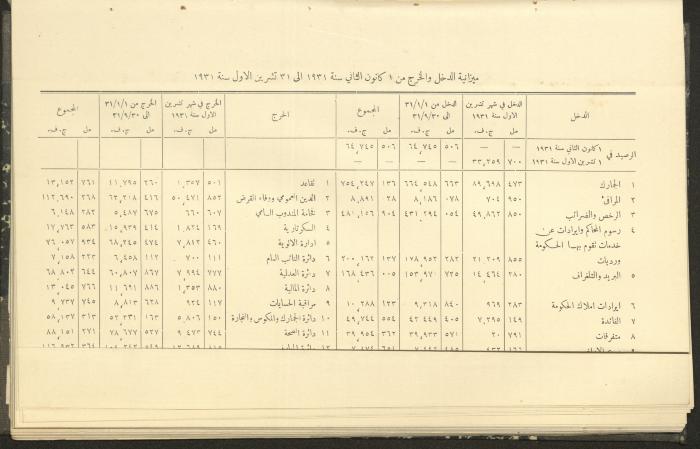 ميزانية الدخل والخرج من ١ كانون الثاني سنة ١٩٣١ الى ٣١ تشرين الاول سنة ١٩٣١
الدخل | الدخل في شهر تشرين الاول سنة ١٩٣١ | الدخل من ٣١/١/١ الى ٣١/٩/٣٠ | المجموع | الخرج | الخرج في شهر تشرين الاول سنة ١٩٣١ | الخرج من ٣١/١/١ الى ٣١/٩/٣٠ | المجموع
مل ج.ف. | مل ج.ف. | مل ج.ف. | مل ج.ف. | مل ج.ف. | مل ج.ف.
الرصيد في ١ كانون الثاني سنة ١٩٣١ | — — | ٥٠٦ ٦٤,٧٤٥ | ٥٠٦ ٦٤,٧٤٥
١ تشرين الاول سنة ١٩٣١ | ٧٠٠ ٣٣,٢٥٩ | — — | — —
١ الجمارك | ٤٧٣ ٨٩,٦٩٨ | ٦٦٣ ٦٦٤,٥٤٨ | ١٣٦ ٧٥٤,٢٤٧ | ١ تقاعد | ٥٠١ ١,٣٥٧ | ٢٦٠ ١١,٧٩٥ | ٧٦١ ١٣,١٥٢
٢ المرافئ | ٩٥٠ ٧٠٤ | ٠٧٨ ٨,١٨٦ | ٠٢٨ ٨,٨٩١ | ٢ الدين العمومي ووفاء القرض | ٨٥٢ ٥٠,٤٧١ | ٤١٦ ٦٢,٢١٨ | ٢٦٨ ١١٢,٦٩٠
٣ الرخص والضرائب | ٨٥٠ ٤٩,٨٦٢ | ٠٥٤ ٤٣١,٢٩٤ | ٩٠٤ ٤٨١,١٥٦ | ٣ فخامة المندوب السامي | ٦٠٧ ٦٦٠ | ٦٧٥ ٥,٤٨٧ | ٢٨٢ ٦,١٤٨
٤ رسوم المحاكم وايرادات عن | ٤ السكرتارية | ١٦٩ ١,٨٢٤ | ٤١٤ ١٥,٩٣٩ | ٥٨٣ ١٧,٧٦٣
خدمات تقوم بها الحكومة | ٥ ادارة الالوية | ٤٦٠ ٧,٨١٢ | ٤٧٤ ٦٨,٢٤٥ | ٩٣٤ ٧٦,٠٥٧
ورديات | ٨٥٥ ٢١,٢٠٩ | ٢٨٢ ١٧٨,٩٥٢ | ١٣٧ ٢٠٠,١٦٢ | ٦ دائرة النائب العام | ١١١ ٧٠٠ | ١١٢ ٦,٤٥٨ | ٢٢٣ ٧,١٥٨
٥ البريد والتلغراف | ٢٨٠ ١٤,٤٦٤ | ٧٢٥ ١٥٣,٩٧١ | ٠٠٥ ١٦٨,٤٣٦ | ٧ دائرة العدلية | ٧٧٧ ٧,٩٩٤ | ٨٦٧ ٦٠,٨٠٧ | ٦٤٤ ٦٨,٨٠٢
٨ دائرة المالية | ٨٨٠ ١,٣٥٣ | ٨٨٦ ١١,٦٩١ | ٧٦٦ ١٣,٠٤٥
٦ ايرادات املاك الحكومة | ٢٨٣ ٩٦٩ | ٨٤٠ ٩,٣١٨ | ١٢٣ ١٠,٢٨٨ | ٩ مراقبة الحسابات | ١١٧ ٩٢٤ | ٦٢٨ ٨,٨١٣ | ٧٤٥ ٩,٧٣٧
٧ الفائدة | ١٤٩ ٧,٢٩٥ | ٤٠٥ ٤٢,٤٤٩ | ٥٥٤ ٤٩,٧٤٤ | ١٠ دائرة الجمارك والمكوس والتجارة | ١٥٠ ٥,٨٠٦ | ١٦٣ ٥٢,٣٣١ | ٣١٣ ٥٨,١٣٧
٨ متفرقات | ٧٩١ ٢٠ | ٥٧١ ٣٩,٩٣٣ | ٣٦٢ ٣٩,٩٥٤ | ١١ دائرة الصحة | ٧٤٤ ٩,٤٧٣ | ٥٢٧ ٧٨,٦٧٧ | ٢٧١ ٨٨,١٥١